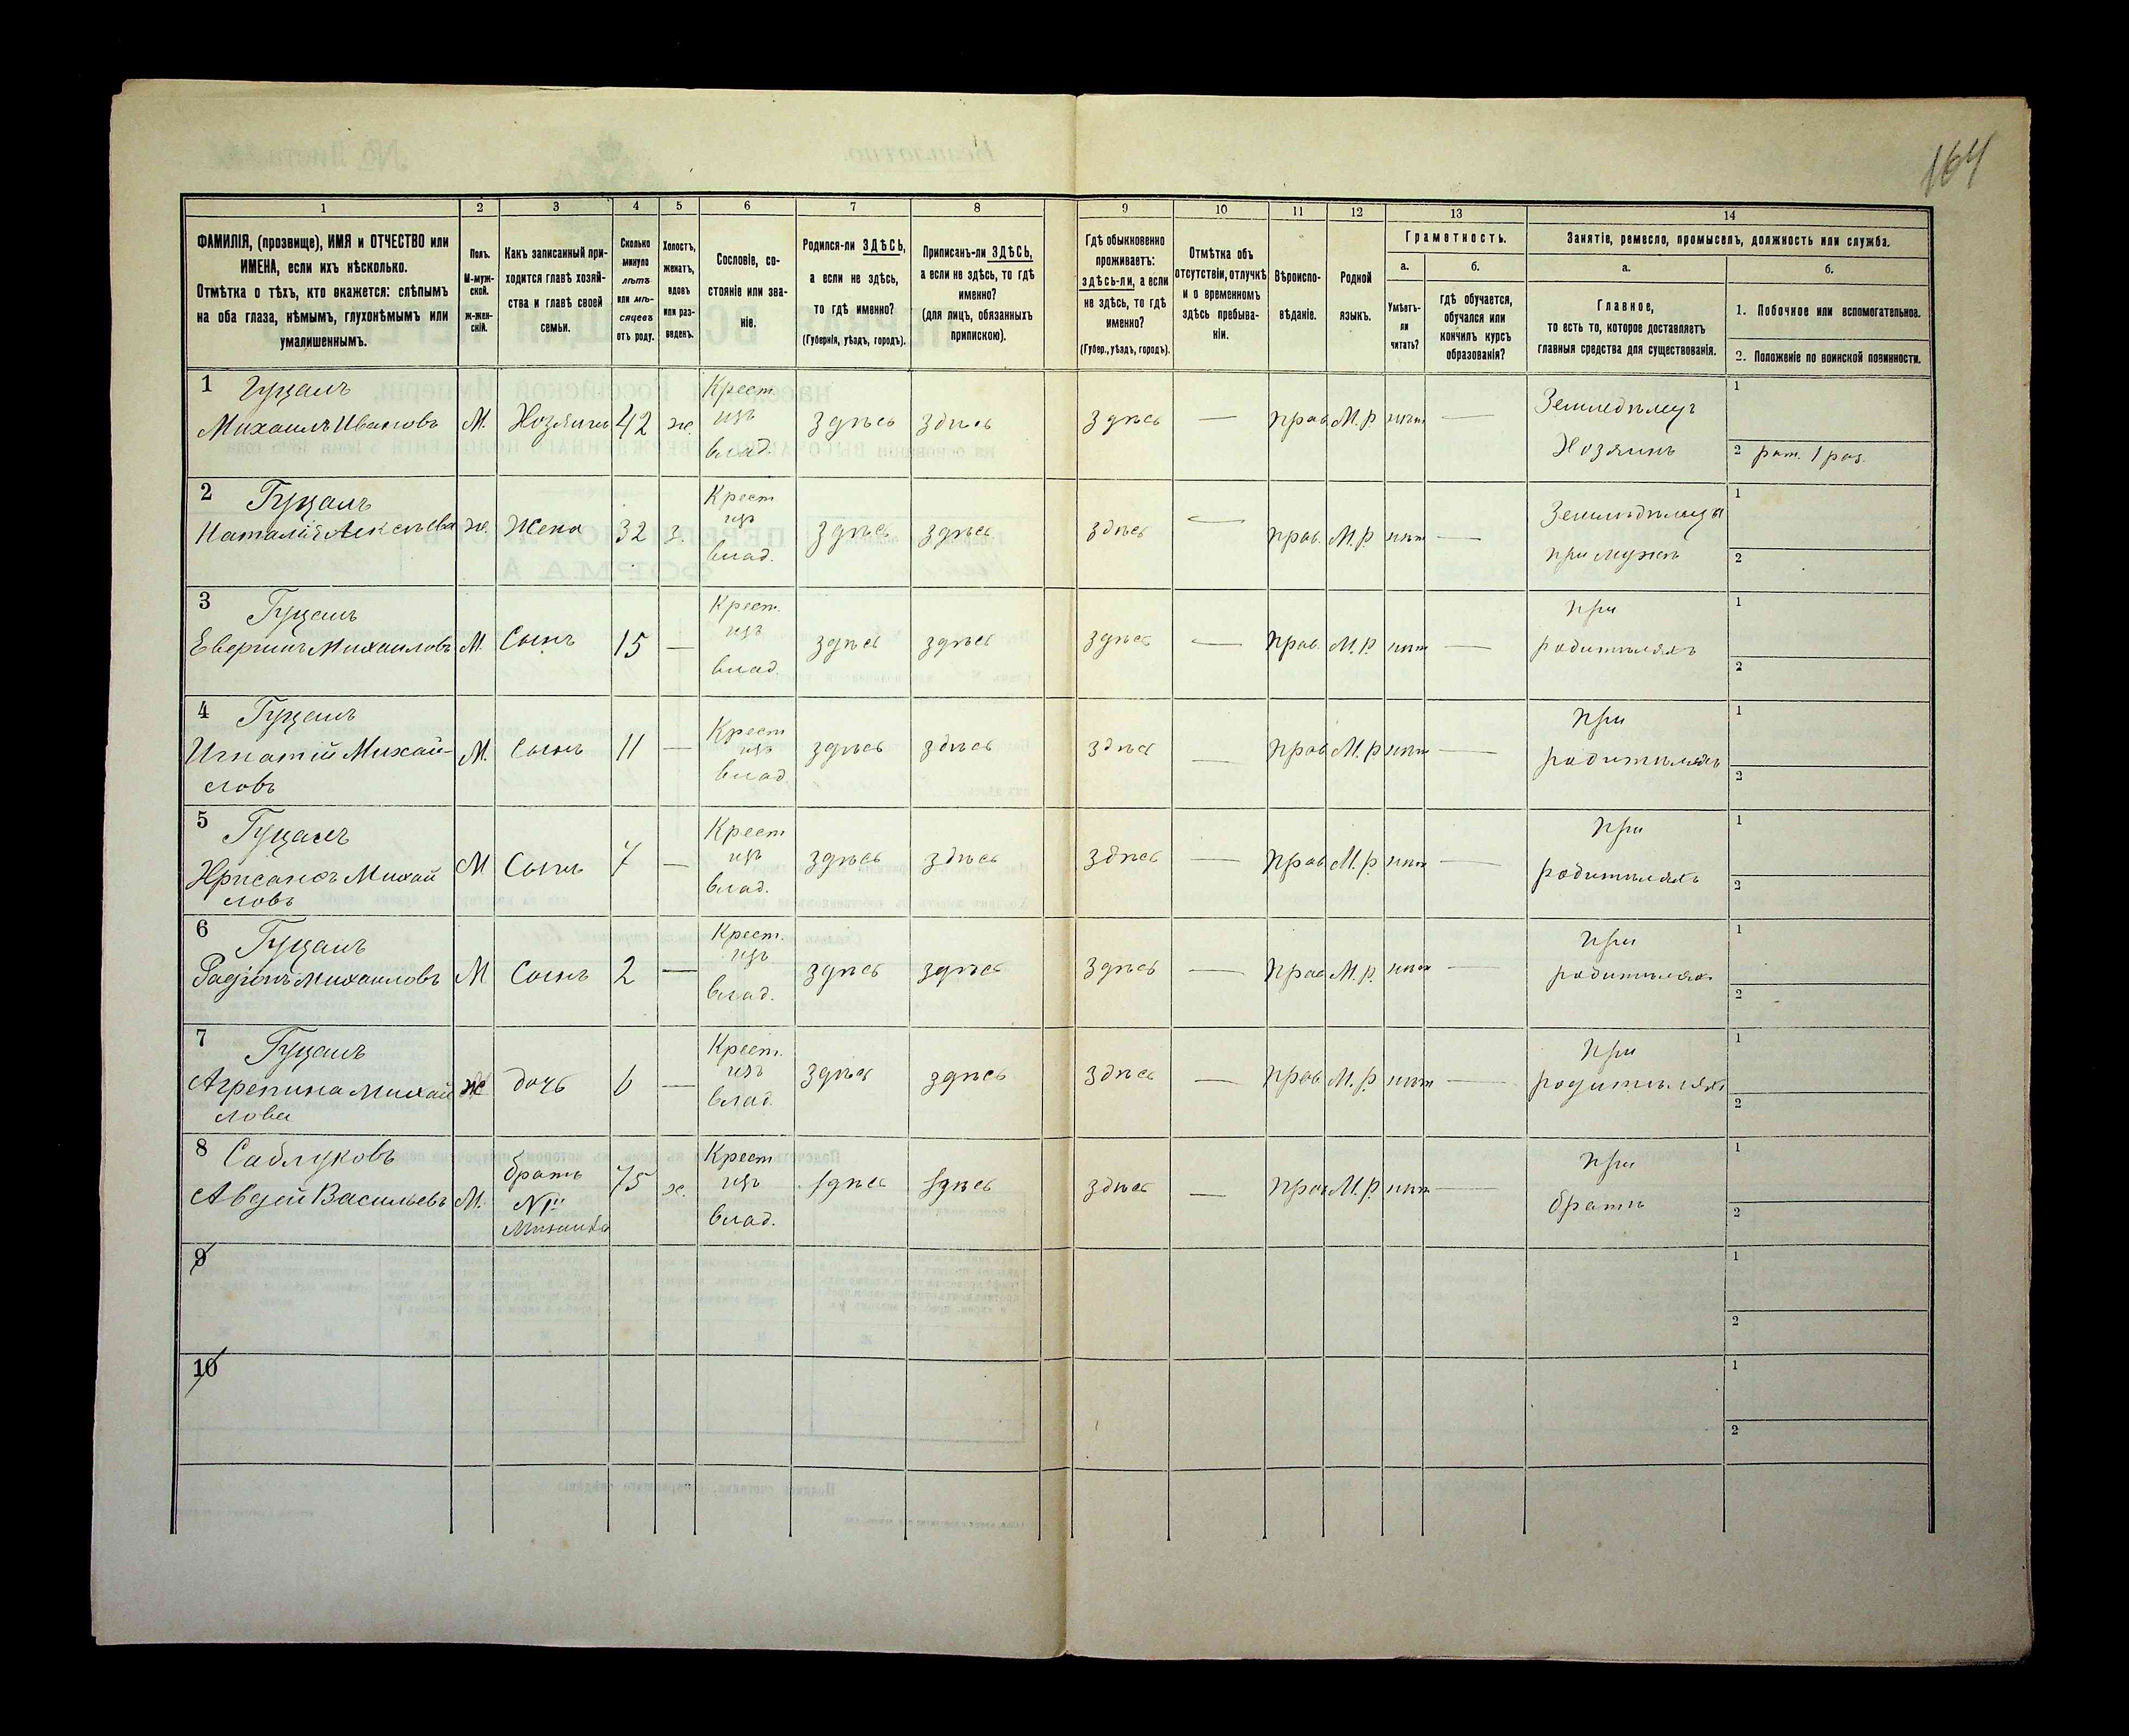 164
1 2 3 4 5 6 7 8 9 10 11 12 13 14
ФАМИЛІЯ, (прозвище), ИМЯ и ОТЧЕСТВО или
ИМЕНА, если ихъ нѣсколько.
Отмѣтка о тѣхъ, кто окажется: слѣпымъ
на оба глаза, нѣмымъ, глухонѣмымъ или
умалишеннымъ.
Полъ.
М-муж-
ской.
ж-жен-
скій.
Какъ записанный при-
ходится главѣ хозяй-
ства и главѣ своей
семьи.
Сколько
минуло
лѣтъ
или мѣ-
сяцевъ
отъ роду.
Холостъ,
женатъ,
вдовъ
или раз-
веденъ.
Сословіе, со-
стояніе или зва-
ніе.
Родился-ли ЗДѢСЬ,
а если не здѣсь,
то гдѣ именно?
(Губернія, уѣздъ, городъ).
Приписанъ-ли ЗДѢСЬ,
а если не здѣсь, то гдѣ
именно?
(для лицъ, обязанныхъ
припискою).
Гдѣ обыкновенно
проживаетъ:
здѣсь-ли, а если
не здѣсь, то гдѣ
именно?
(Губер., уѣздъ, городъ).
Отмѣтка объ
отсутствіи, отлучкѣ
и о временномъ
здѣсь пребыва-
ніи.
Вѣроиспо-
вѣданіе.
Родной
языкъ.
Грамотность.
а.
Умѣетъ-
ли
читать?
б.
гдѣ обучается,
обучался или
кончилъ курсъ
образованія?
Занятіе, ремесло, промыселъ, должность или служба.
а.
Главное,
то есть то, которое доставляетъ
главныя средства для существованія.
б.
1. Побочное или вспомогательное.
2. Положеніе по воинской повинности.
1 Гуцалъ
Михаилъ Ивановъ М. Хозяинъ 42 ж.
Крест.
изъ
влад.
здѣсь здѣсь здѣсь — прав. М.р. нѣт —
Земледѣлецъ
Хозяинъ
1
2 рат. 1 раз.
2 Гуцалъ
Наталія Алексѣева ж. Жена 32 з.
Крест
изъ
влад.
здѣсь здѣсь здѣсь — прав. М.р. нѣт —
при мужѣ
1
2
3 Гуцалъ
Михаиловъ М. Сынъ 15 —
Крест.
изъ
влад.
здѣсь здѣсь здѣсь — прав. М.р. нѣт —
при
родителяхъ
1
2
4 Гуцалъ
Игнатій Михай-
ловъ
М. Сынъ 11 —
Крест
изъ
влад.
здѣсь здѣсь здѣсь — прав. М.р. нѣт —
при
родителяхъ
1
2
5 Гуцалъ
Хрисанфъ Михай
ловъ
М Сынъ 7 —
Крест
изъ
влад.
здѣсь здѣсь здѣсь — прав. М.р. нѣт —
при
родителяхъ
1
2
6 Гуцалъ
Радіонъ Михаиловъ М Сынъ 2 —
Крест.
изъ
влад.
здѣсь здѣсь здѣсь — прав. М.р. нѣт —
при
родителях
1
2
7 Гуцалъ
Агрепина Михай
лова
ж дочь 6 —
Крест.
изъ
влад.
здѣсь здѣсь здѣсь — прав. М.р. нѣт —
при
родителях
1
2
8 Саблуковъ
Авдѣй Васильевъ М.
братъ
№1й
75 ж.
Крест
изъ
влад.
здѣсь здѣсь здѣсь — прав. М.р. нѣт —
при
братѣ
1
2
9
1
2
10
1
2